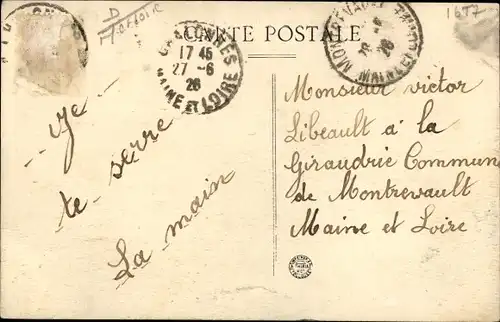 D
CARTE POSTALE
1677
CHALONNES
17 45
27 - 6
26
MAINE ET LOIRE
MONTREVAULT
26
MAINE ET LOIRE
- Je -
te - serre
La main
Monsieur victor
Libeault à la
Giraudrie Commun
de Montrevault
Maine et Loire